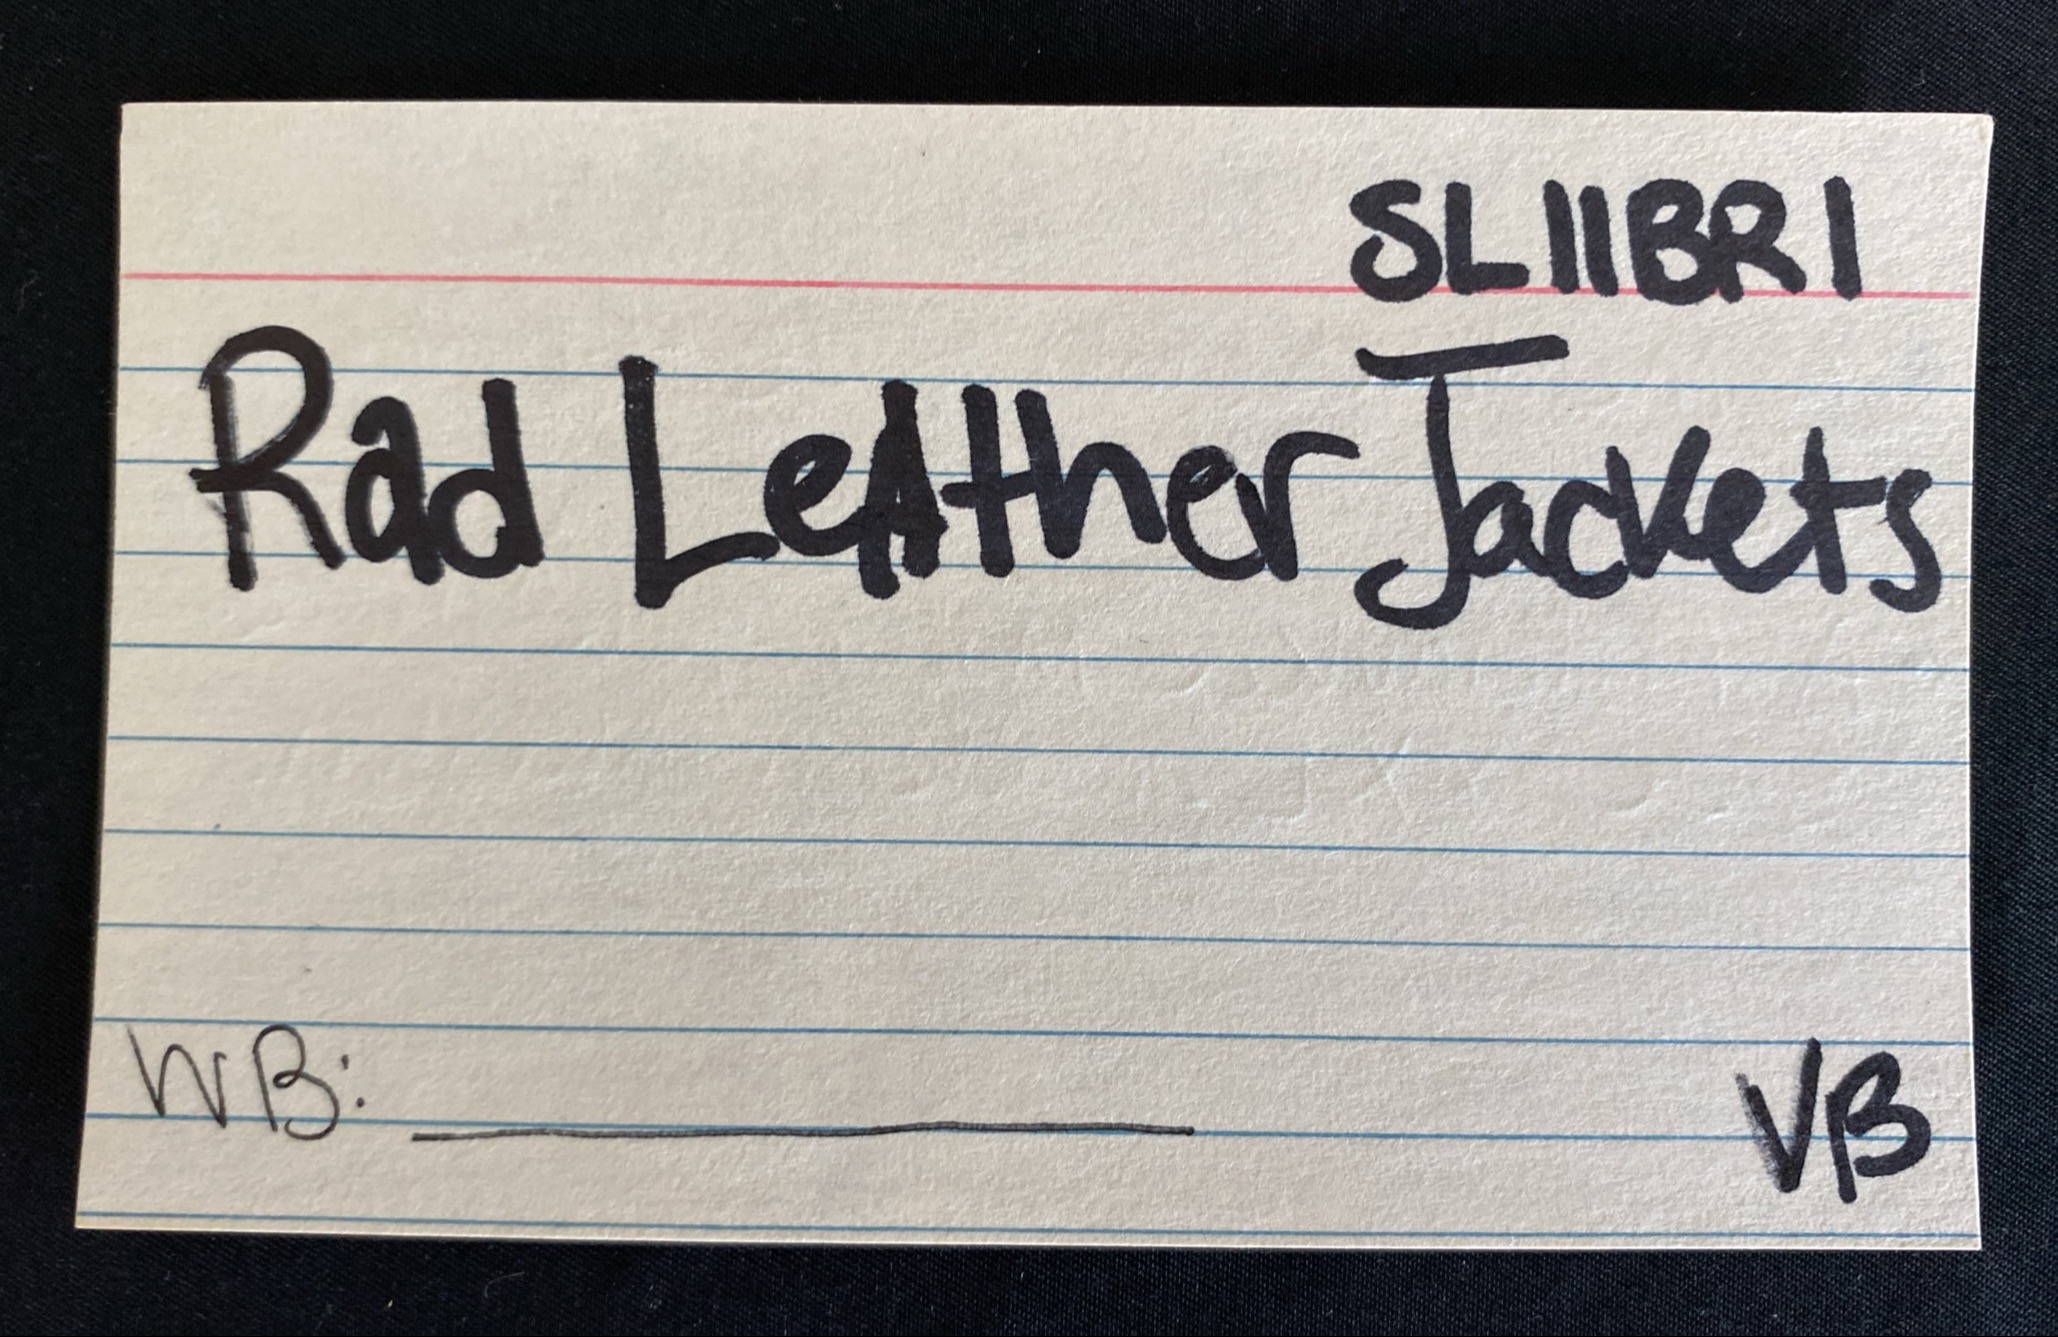 SL11BR1
Rad Leather Jackets
WB: ________
VB